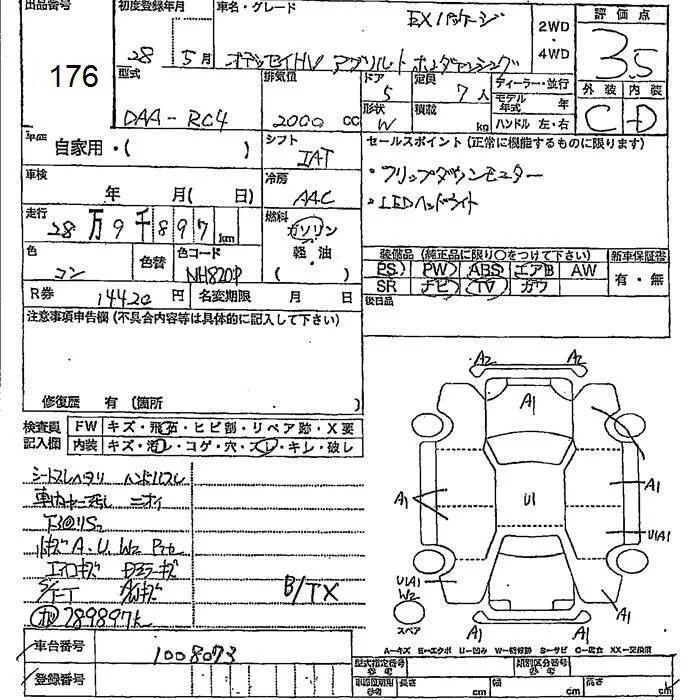 出品番号
176
初度登録年月
28年 5月
車名・グレード
EXパッケージ
オデッセイHV アブソルート ホンダセンシング
2WD・4WD
評価点
3.5
外装 内装
C D
型式
DAA-RC4
排気値
2000 cc
ドア
5
定員
7人
形状
W
積載
kg
ディーラー・並行
モデル年式 年
ハンドル 左・右
車歴
自家用・( )
シフト
IAT
セールスポイント (正常に機能するものに限ります)
・フリップダウンモニター
・LEDヘッドライト
車検
年 月( 日)
冷房
AAC
走行
28万9千897km
燃料
ガソリン
軽・油
( )
色
コン
色替
色コード
NH820P
装備品 (純正品に限り○をつけて下さい)
PS PW ABS エアB AW
SR ナビ TV カワ
新車保証書
有・無
R券
14420 円
名変期限 月 日
後日品
注意事項申告欄 (不具合内容等は具体的に記入して下さい)
修復歴 有 (箇所
検査員記入欄
FW キズ・飛石・ヒビ割・リペア跡・X要
内装 キズ・汚レ・コゲ・穴・スレ・キレ・破レ
シートスレヘタリ ハンドルスレ
ニオイ
キズA.U.W2
エアロキズ
B/TX
289897k
A2 A2
A1
A1
A1
U1
U1A1
U1A1
W2
A1
スペア
A1 A1
A-キズ E-エクボ U-凹み W-補修跡 S-サビ C-腐食 XX-交換済
車台番号
1008073
登録番号
型式指定番号
参考
類別区分番号
参考
車両置場用
参考
長さ cm
幅 cm
高さ cm